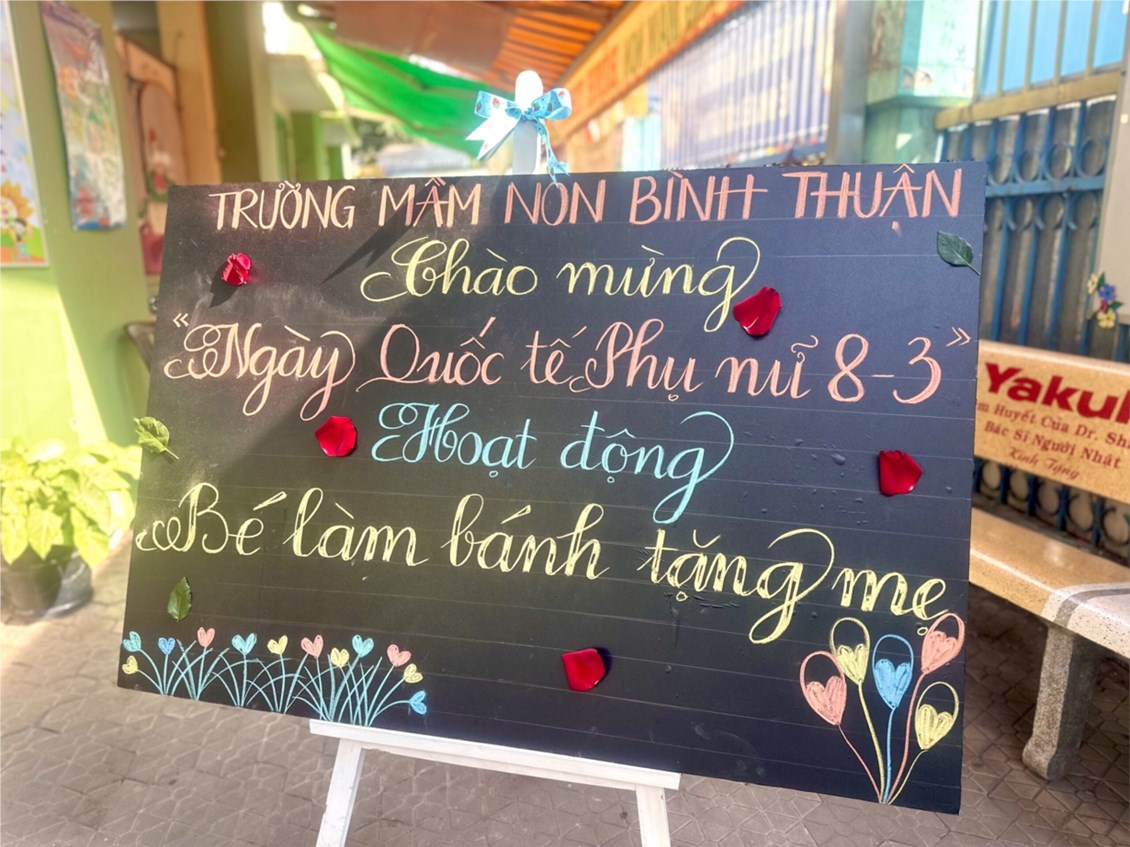 TRƯỜNG MẦM NON BÌNH THUẬN
Chào mừng
"Ngày Quốc tế Phụ nữ 8-3"
Hoạt động
Bé làm bánh tặng mẹ
Yakul
Huyết Của Dr.
Bác Sĩ Người Nhật
Kính Tặng